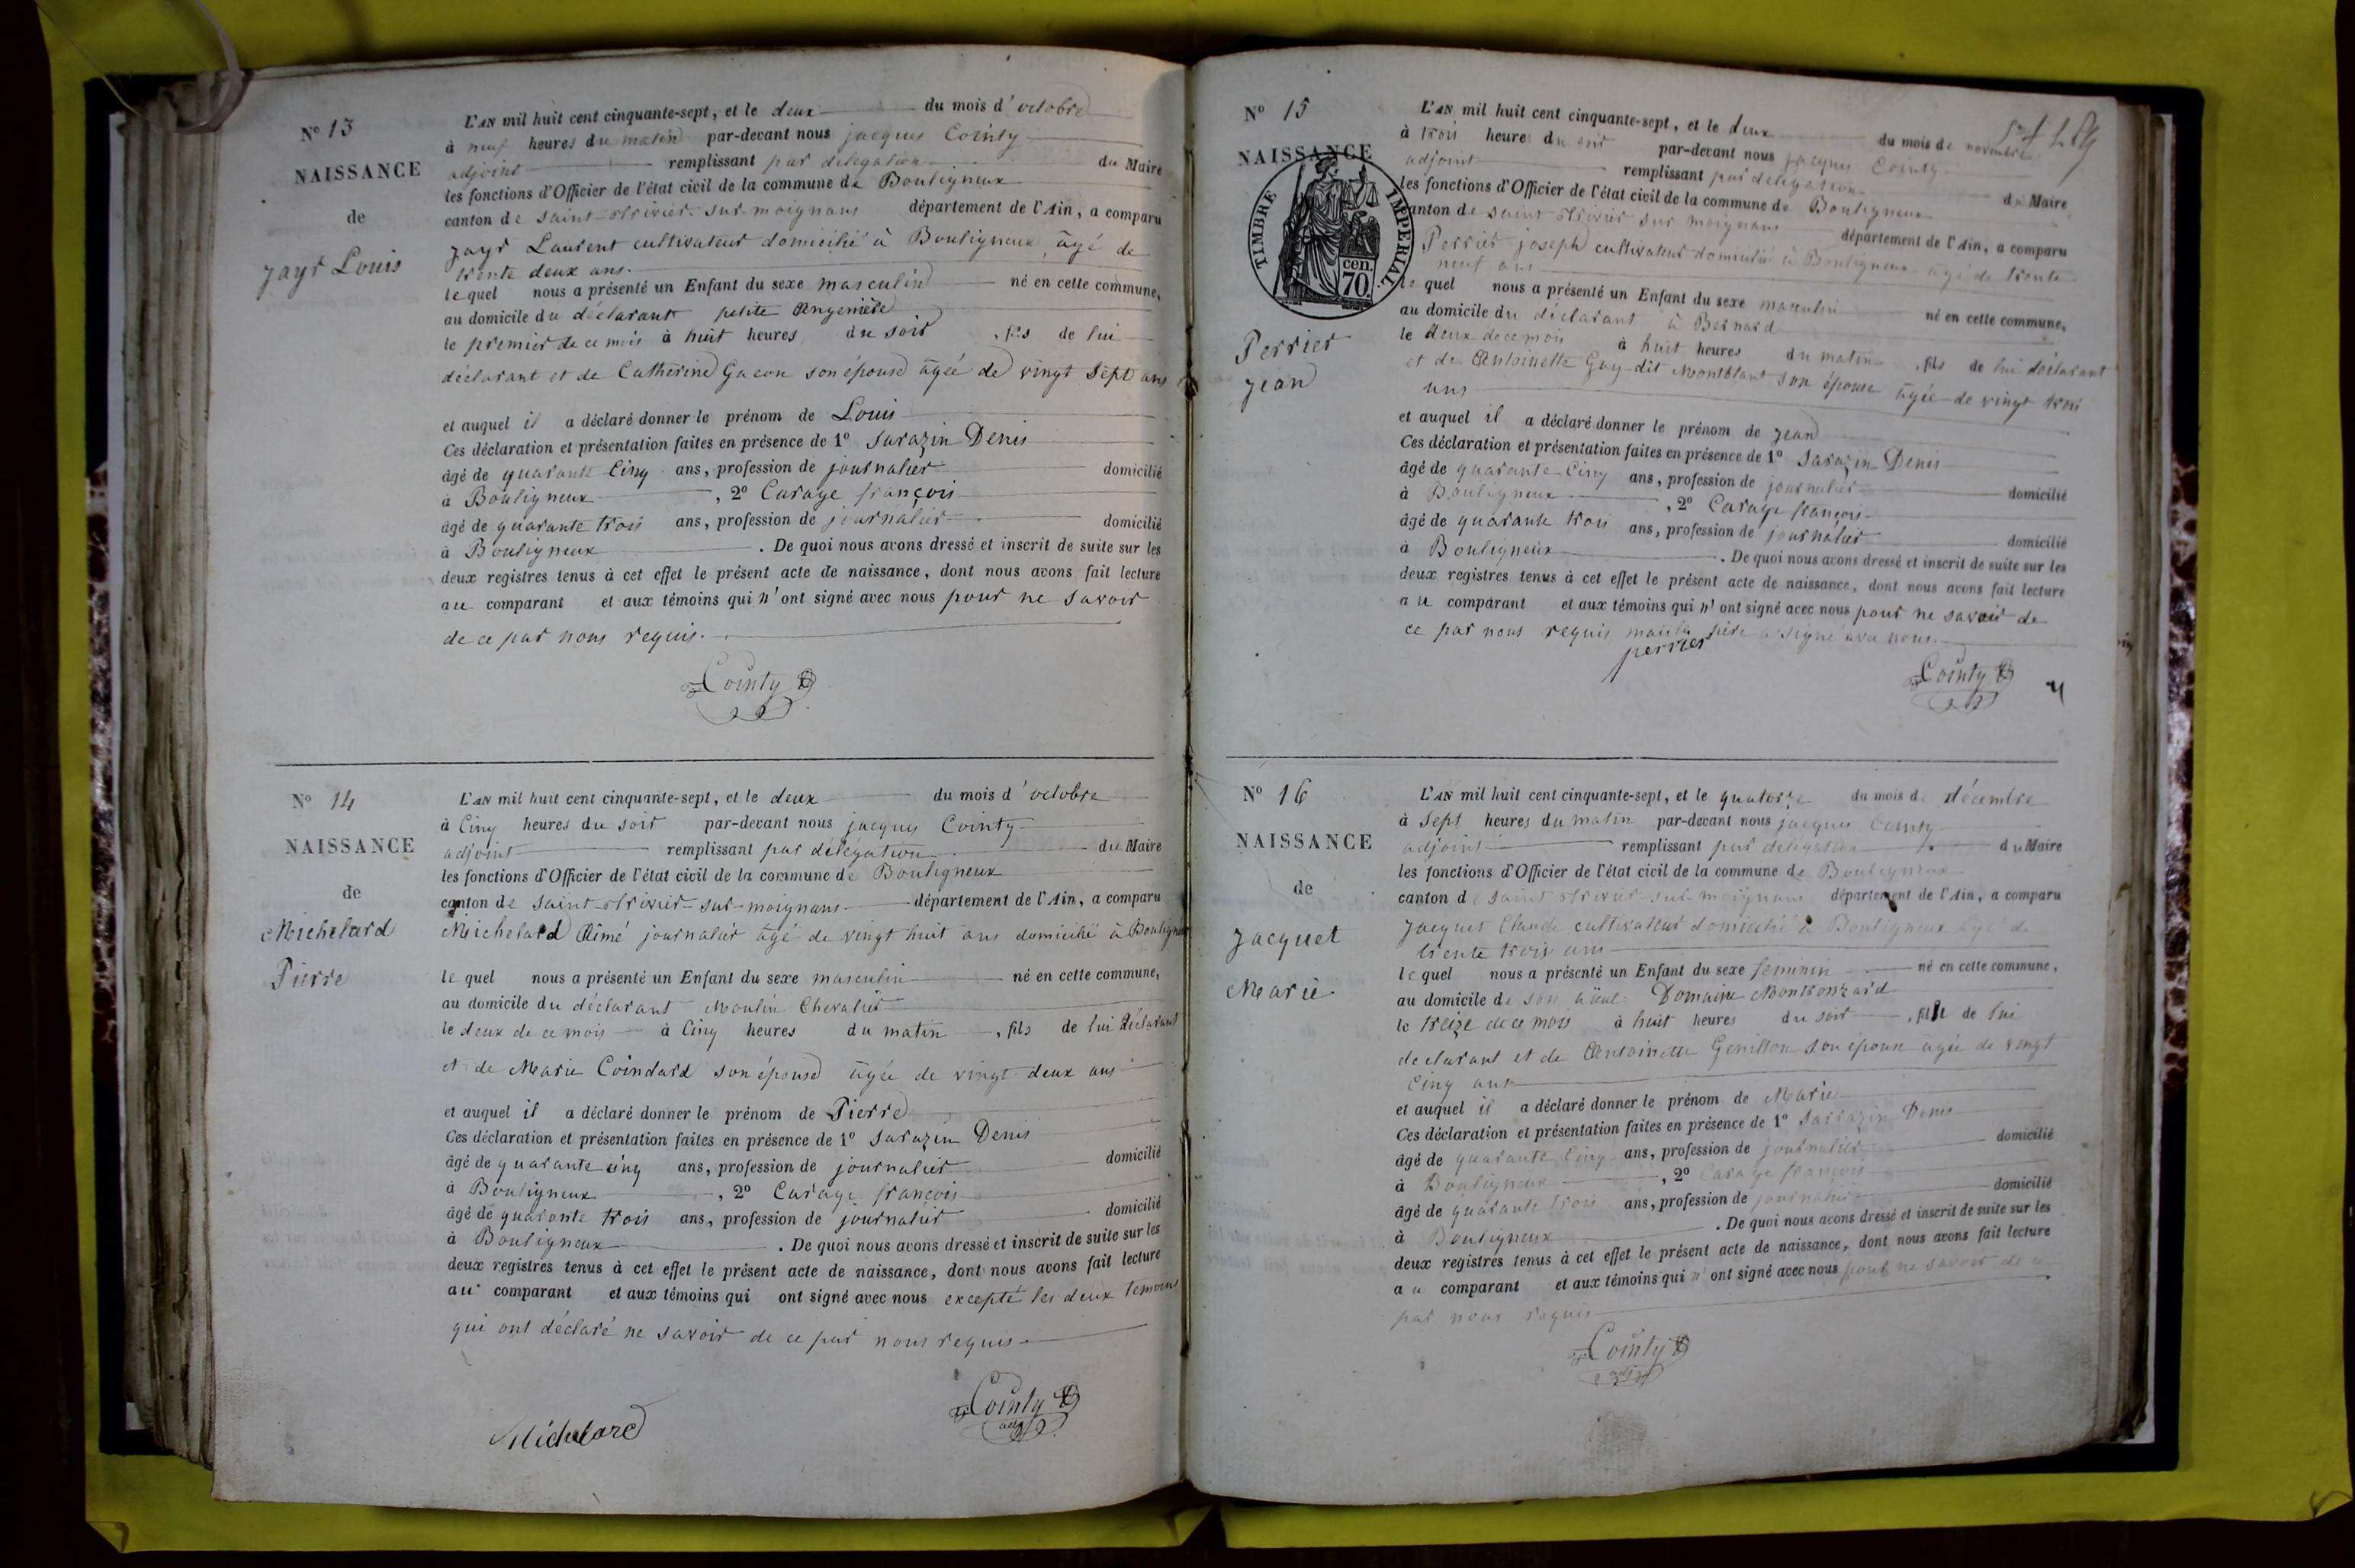 N° 13
NAISSANCE
de
Jayr Louis
L'AN mil huit cent cinquante-sept, et le deux du mois d'octobre
à neuf heures du matin par-devant nous jacques Cointy
adjoint remplissant par délégation du Maire
les fonctions d'Officier de l'état civil de la commune de Bouligneux
canton de saint-trivier-sur-moignans département de l'Ain, a comparu
Jayr Laurent cultivateur domicilié à Bouligneux âgé de
trente deux ans.
lequel nous a présenté un Enfant du sexe masculin né en cette commune,
au domicile du déclarant petite
le premier de ce mois à huit heures du soir, fils de lui
déclarant et de Catherine Gacon son épouse âgée de vingt sept ans
et auquel il a déclaré donner le prénom de Louis
Ces déclaration et présentation faites en présence de 1° Sarazin Denis
âgé de quarante Cinq ans, profession de journalier domicilié
à Bouligneux, 2° Carage françois
âgé de quarante trois ans, profession de journalier domicilié
à Bouligneux. De quoi nous avons dressé et inscrit de suite sur les
deux registres tenus à cet effet le présent acte de naissance, dont nous avons fait lecture
au comparant et aux témoins qui n'ont signé avec nous pour ne savoir
de ce par nous requis.
Cointy
N° 14
NAISSANCE
de
Michelard
Pierre
L'AN mil huit cent cinquante-sept, et le deux du mois d'octobre
à Cinq heures du soir par-devant nous jacques Cointy
adjoint remplissant par délégation du Maire
les fonctions d'Officier de l'état civil de la commune de Bouligneux
canton de saint-trivier-sur-moignans département de l'Ain, a comparu
Michelard Aimé journalier âgé de vingt huit ans domicilié à Bouligneux
lequel nous a présenté un Enfant du sexe masculin né en cette commune,
au domicile du déclarant Moulin Chevalier
le deux de ce mois à Cinq heures du matin, fils de lui déclarant
et de Marie Coindard son épouse âgée de vingt deux ans
et auquel il a déclaré donner le prénom de Pierre
Ces déclaration et présentation faites en présence de 1° Sarazin Denis
âgé de quarante cinq ans, profession de journalier domicilié
à Bouligneux, 2° Carage françois
âgé de quarante trois ans, profession de journalier domicilié
à Bouligneux. De quoi nous avons dressé et inscrit de suite sur les
deux registres tenus à cet effet le présent acte de naissance, dont nous avons fait lecture
au comparant et aux témoins qui ont signé avec nous excepté les deux temoins
qui ont déclaré ne savoir de ce par nous requis
Michelard
Cointy
adj
N° 15
NAISSANCE
TIMBRE IMPERIAL
70 cen.
Perrier
Jean
L'AN mil huit cent cinquante-sept, et le deux du mois de novembre
à trois heures du soir par-devant nous jacques Cointy
adjoint remplissant par délégation du Maire
les fonctions d'Officier de l'état civil de la commune de Bouligneux
canton de saint trivier sur moignans département de l'Ain, a comparu
Perrier joseph cultivateur domicilié à Bouligneux âgé de trente
neuf ans
lequel nous a présenté un Enfant du sexe masculin né en cette commune,
au domicile du déclarant à Bernard
le deux de ce mois à huit heures du matin, fils de lui déclarant
et de Antoinette Guy-dit Montblant son épouse âgée de vingt trois
ans
et auquel il a déclaré donner le prénom de Jean
Ces déclaration et présentation faites en présence de 1° Sarazin Denis
âgé de quarante Cinq ans, profession de journalier domicilié
à Bouligneux, 2° Carage françois
âgé de quarante trois ans, profession de journalier domicilié
à Bouligneux. De quoi nous avons dressé et inscrit de suite sur les
deux registres tenus à cet effet le présent acte de naissance, dont nous avons fait lecture
au comparant et aux témoins qui n'ont signé avec nous pour ne savoir de
ce par nous requis mais le père a signé avec nous.
perrier
Cointy
N° 16
NAISSANCE
de
Jacquet
Marie
L'AN mil huit cent cinquante-sept, et le quatorze du mois de décembre
à Sept heures du matin par-devant nous jacques Cointy
adjoint remplissant par délégation du Maire
les fonctions d'Officier de l'état civil de la commune de Bouligneux
canton de saint trivier-sur-moignans département de l'Ain, a comparu
Jacquet Claude cultivateur domicilié à Bouligneux âgé de
trente trois ans
lequel nous a présenté un Enfant du sexe feminin né en cette commune,
au domicile de son aïeul Domaine
le treize de ce mois à huit heures du soir, fille de lui
declarant et de Antoinette Genillon son epouse agée de vingt
Cinq ans
et auquel il a déclaré donner le prénom de Marie
Ces déclaration et présentation faites en présence de 1° Sarrazin Denis
âgé de quarante Cinq ans, profession de journalier domicilié
à Bouligneux, 2° Carage françois
âgé de quarante trois ans, profession de journalier domicilié
à Bouligneux. De quoi nous avons dressé et inscrit de suite sur les
deux registres tenus à cet effet le présent acte de naissance, dont nous avons fait lecture
au comparant et aux témoins qui n'ont signé avec nous pour ne savoir de ce
par nous requis
Cointy